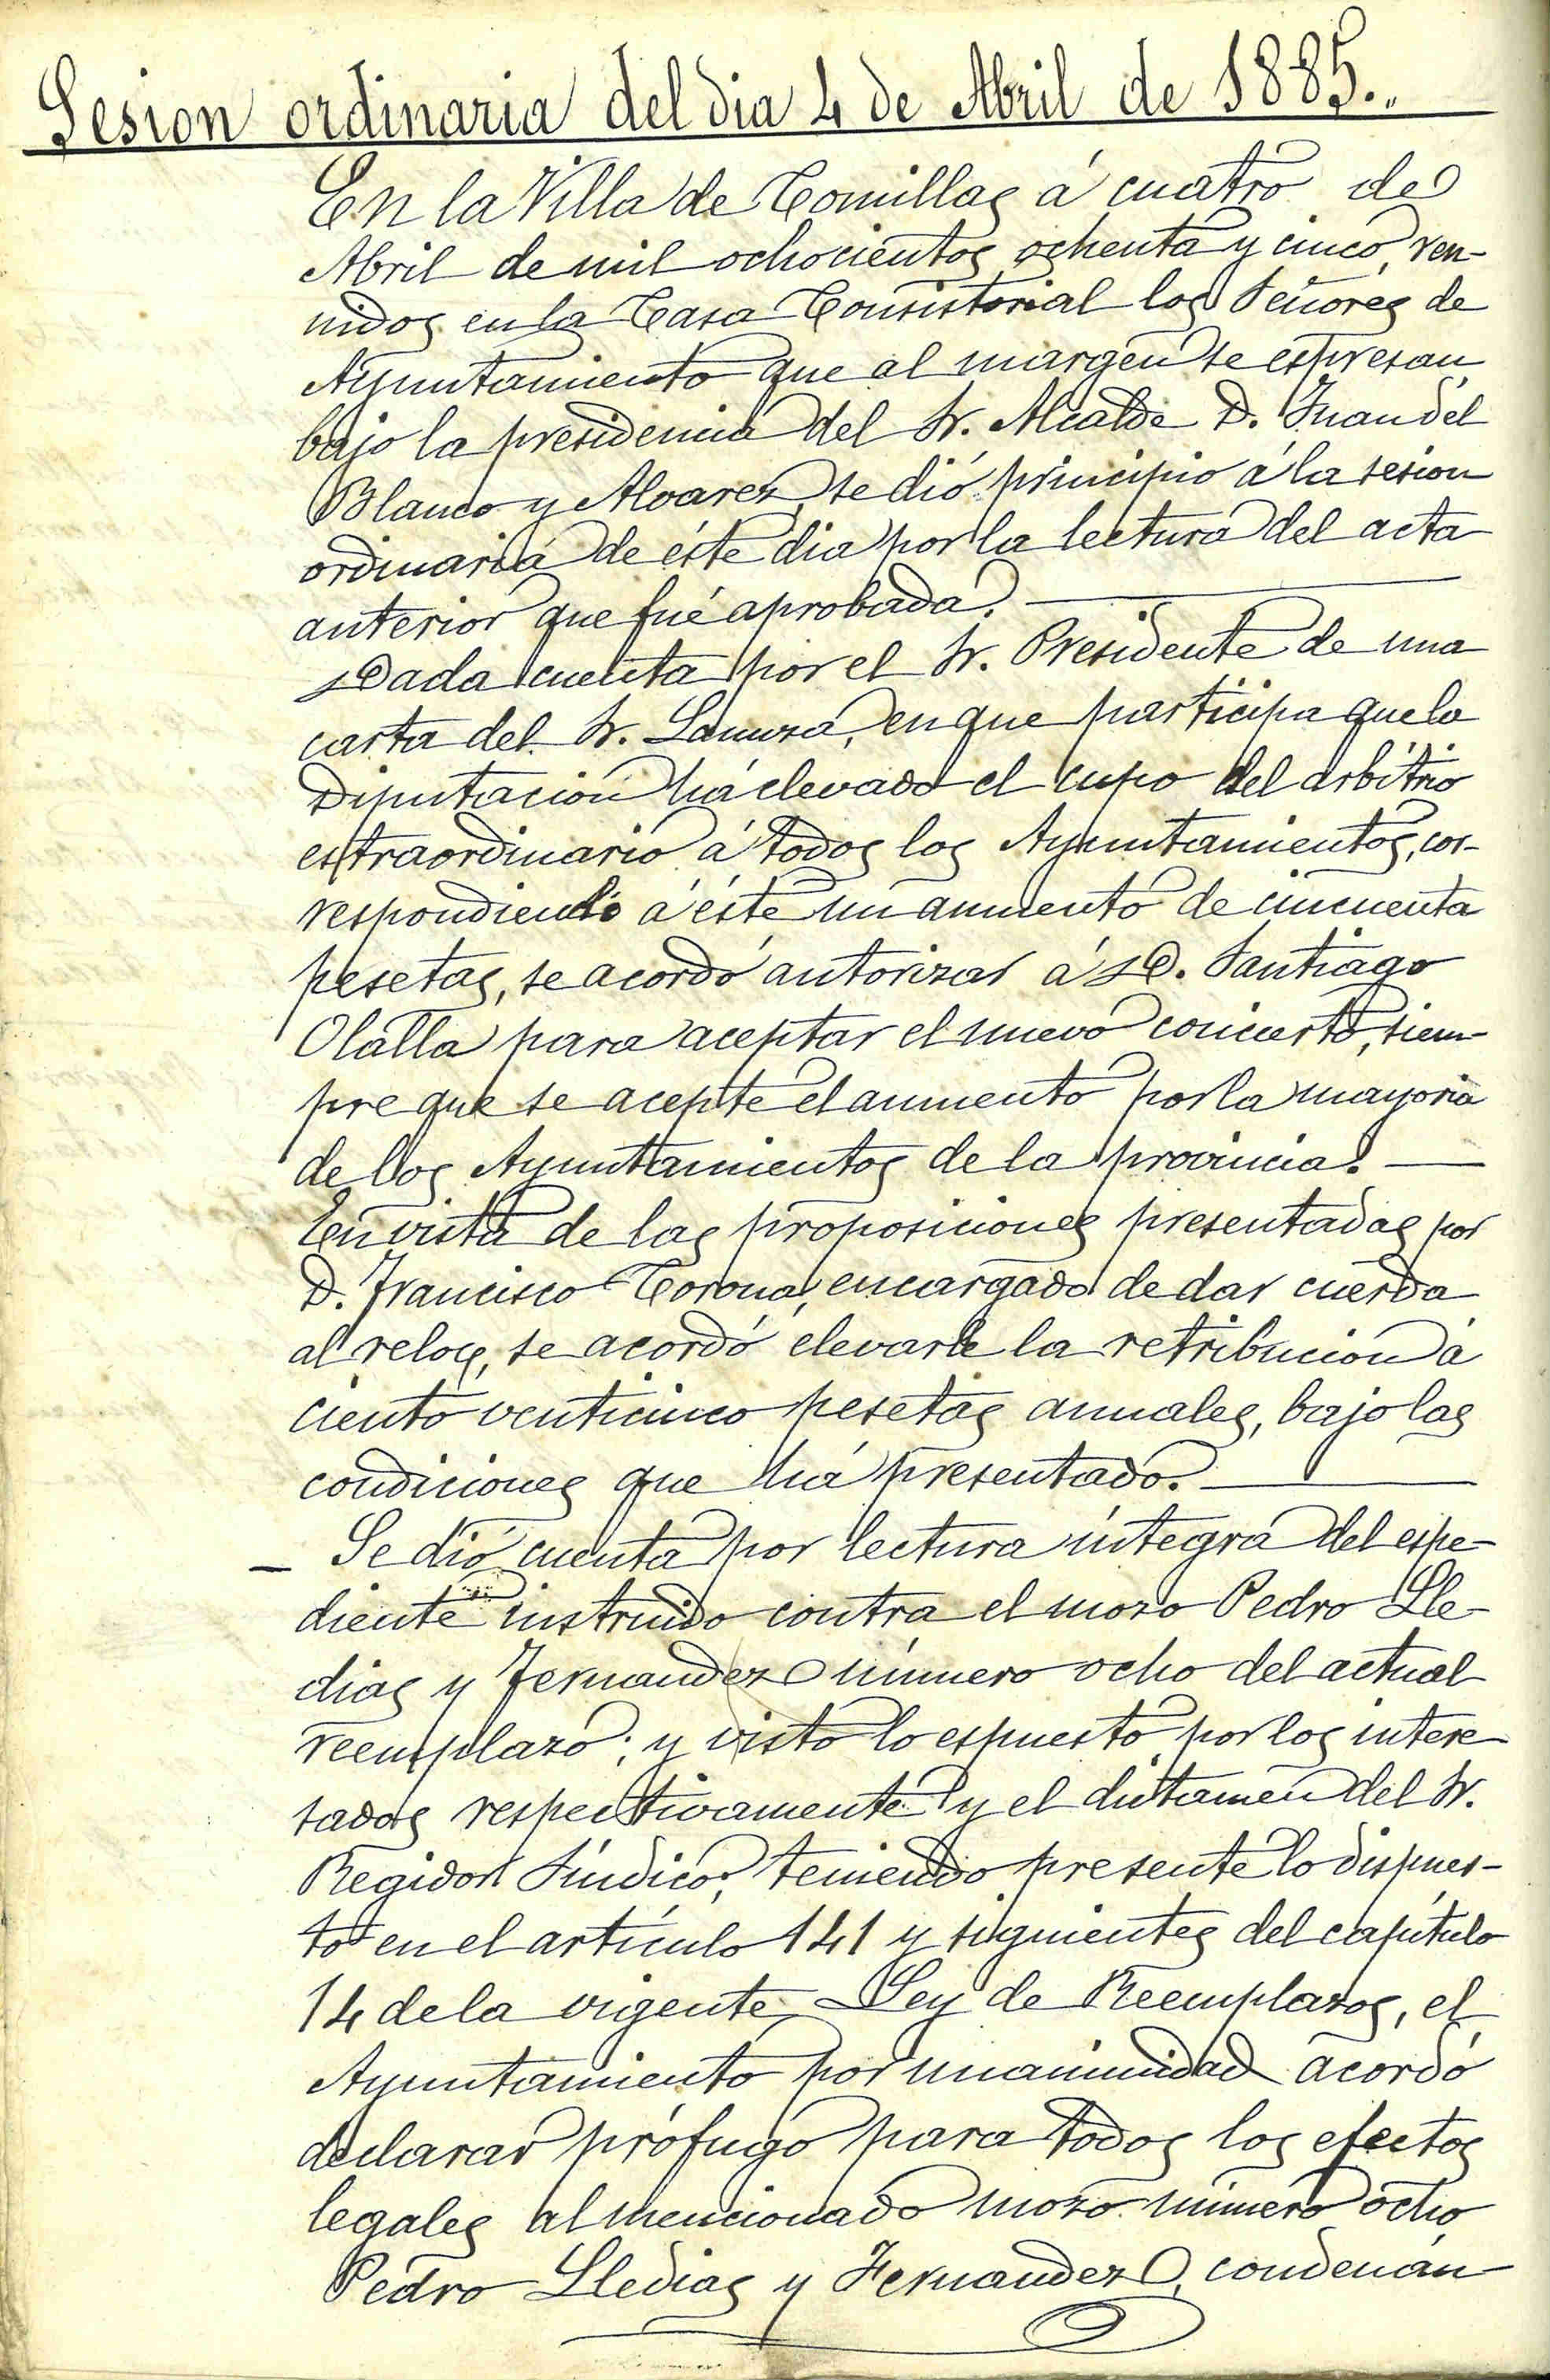 Sesion ordinaria del dia 4 de Abril de 1885.
En la Villa de Comillas á cuatro de
Abril de mil ochocientos ochenta y cinco, reu-
nidos en la Casa Consistorial los Señores de
Ayuntamiento que al margen se espresan
bajo la presidencia del Sr. Alcalde D. Juan del
Blanco y Alvarez, se dió principio á la sesion
ordinaria de éste dia por la lectura del acta
anterior que fué aprobada.
Dada cuenta por el Sr. Presidente de una
carta del Sr. Lanuza, en que participa que la
Diputacion há elevado el cupo del arbitrio
estraordinario á todos los Ayuntamientos, cor-
respondiendo á éste un aumento de cincuenta
pesetas, se acordó autorizar á D. Santiago
Olalla para aceptar el nuevo concierto, siem-
pre que se acepte el aumento por la mayoria
de los Ayuntamientos de la provincia.
En vista de las proposiciones presentadas por
D. Francisco Corona, encargado de dar cuerda
al reloj, se acordó elevarle la retribucion á
ciento venticinco pesetas anuales, bajo las
condiciones que há presentado.
– Se dió cuenta por lectura integra del espe-
diente instruido contra el mozo Pedro Lle-
dias y Fernandez número ocho del actual
reemplazo; y visto lo espuesto por los intere-
sados respectivamente y el dictamen del Sr.
Regidor Síndico; teniendo presente lo dispues-
to en el artículo 141 y siguientes del capítulo
14 de la vigente Ley de Reemplazos, el
Ayuntamiento por unanimidad acordó
declarar prófugo para todos los efectos
legales al mencionado mozo número ocho
Pedro Lledias y Fernandez, condenán